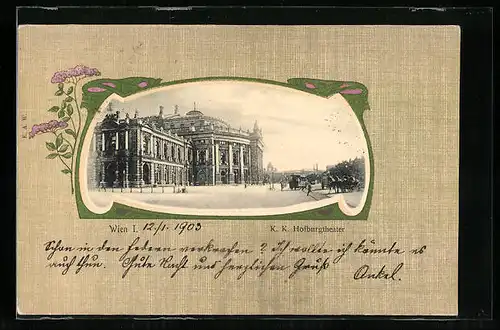 Wien I. 12/1. 1903
K. K. Hofburgtheater
Schon in den Federn verkrochen? Ich wollte ich könnte es
auch thun. Gute Nacht und herzlichen Gruß
Onkel.